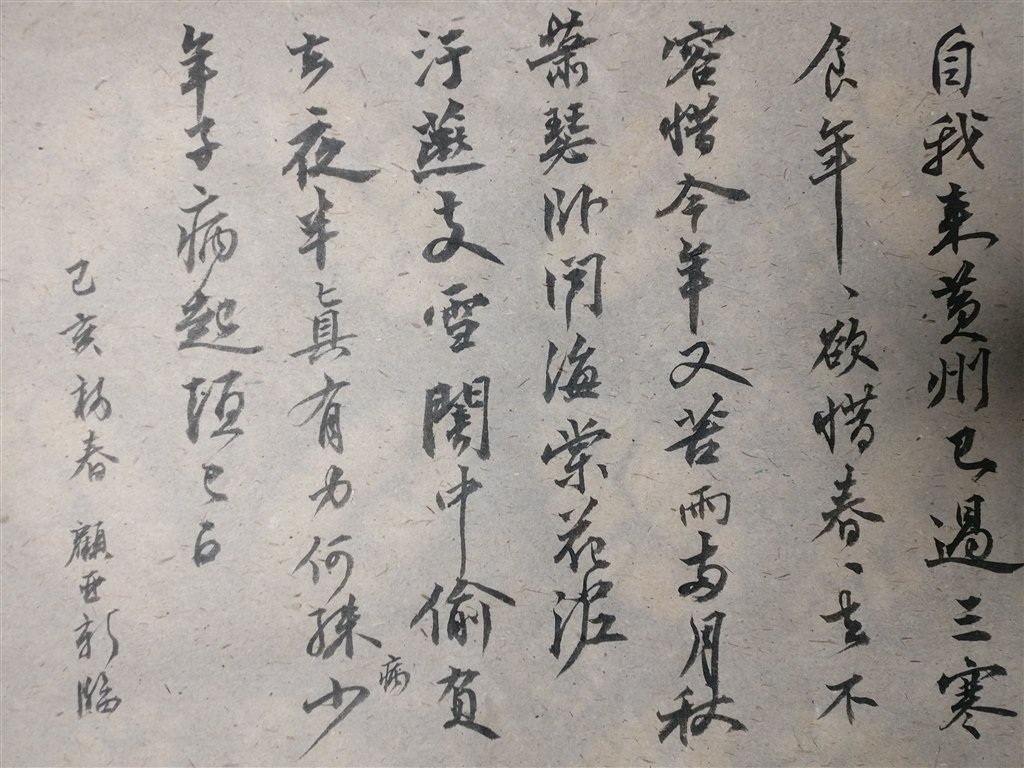 自我来黄州已過三寒
食年、欲惜春、去不
容惜今年又苦雨兩月秋
蕭瑟卧聞海棠花泥
汙燕支雪闇中偷負
去夜半真有力何殊少
病
年子病起頭已白
己亥初春 顧亞新臨